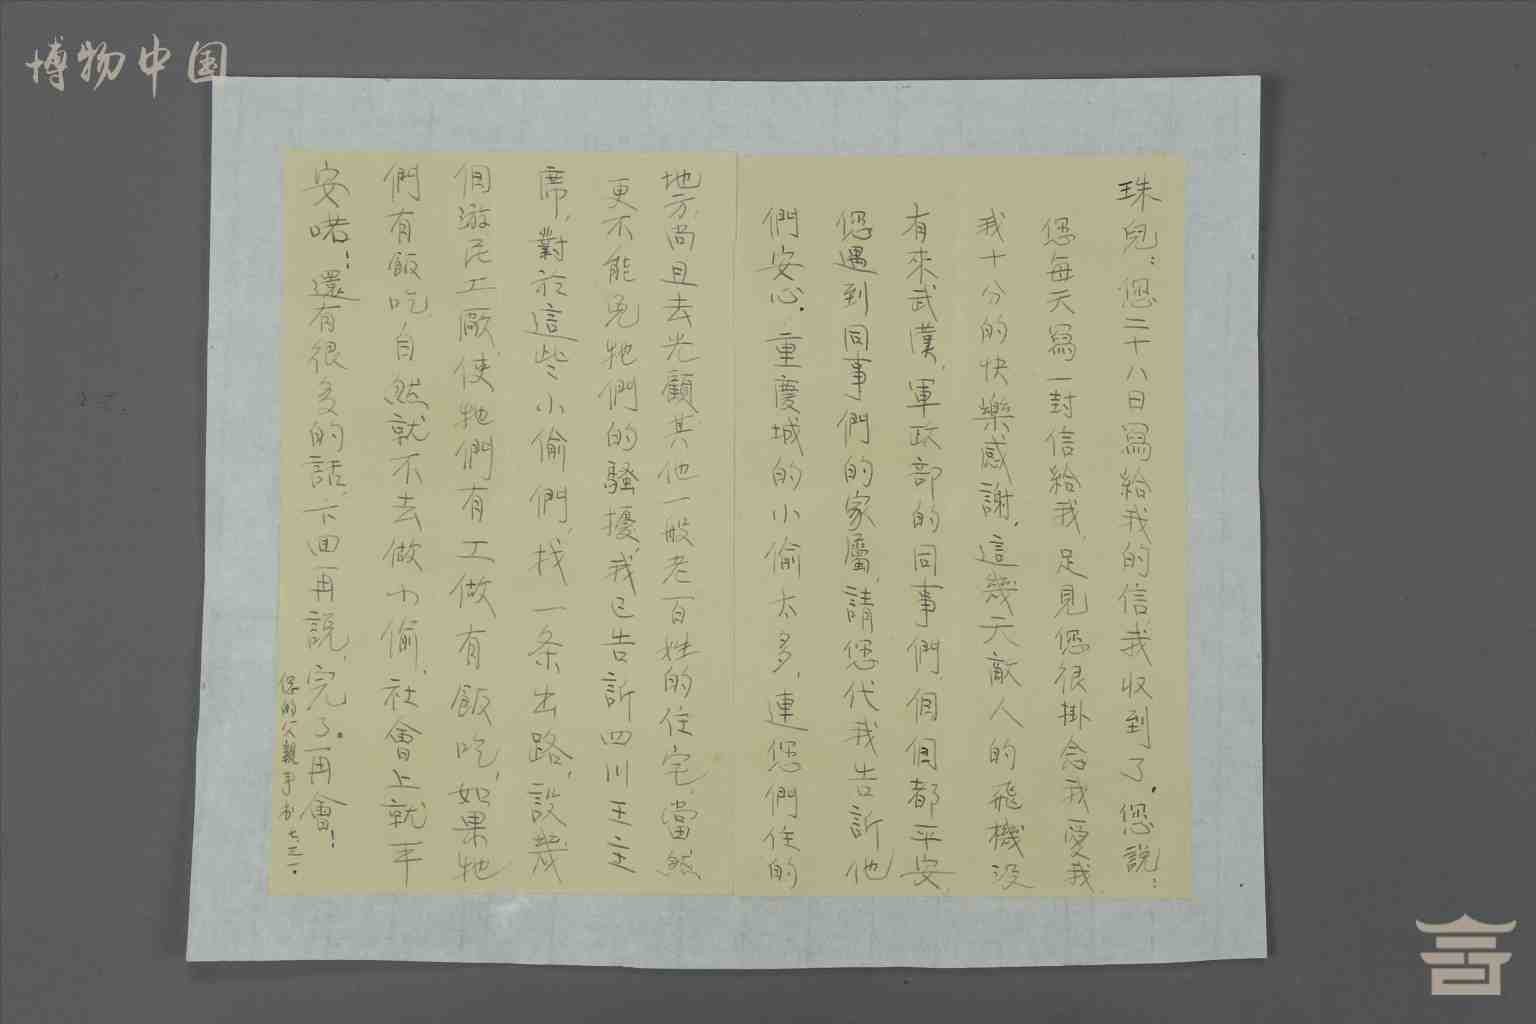 博物中国
珠兒：您二十八日寫給我的信我收到了．您說：
您每天寫一封信給我，足見您很掛念我愛我，
我十分的快樂感謝．這幾天敵人的飛機没
有來武漢，軍政部的同事們，個個都平安，
您遇到同事們的家屬，請您代我告訢他
們安心．重慶城的小偷太多，連您們住的
地方，尚且去光顧，其他一般老百姓的住宅，當然
更不能免牠們的騷擾，我已告訢四川王主
席，對於這些小偷們，找一条出路，設幾
個游民工廠，使牠們有工做有飯吃，如果牠
們有飯吃，自然就不去做小偷，社會上就平
安喏！還有很多的話，下面再說，完了．再會！
您的父親手书 七．三一．